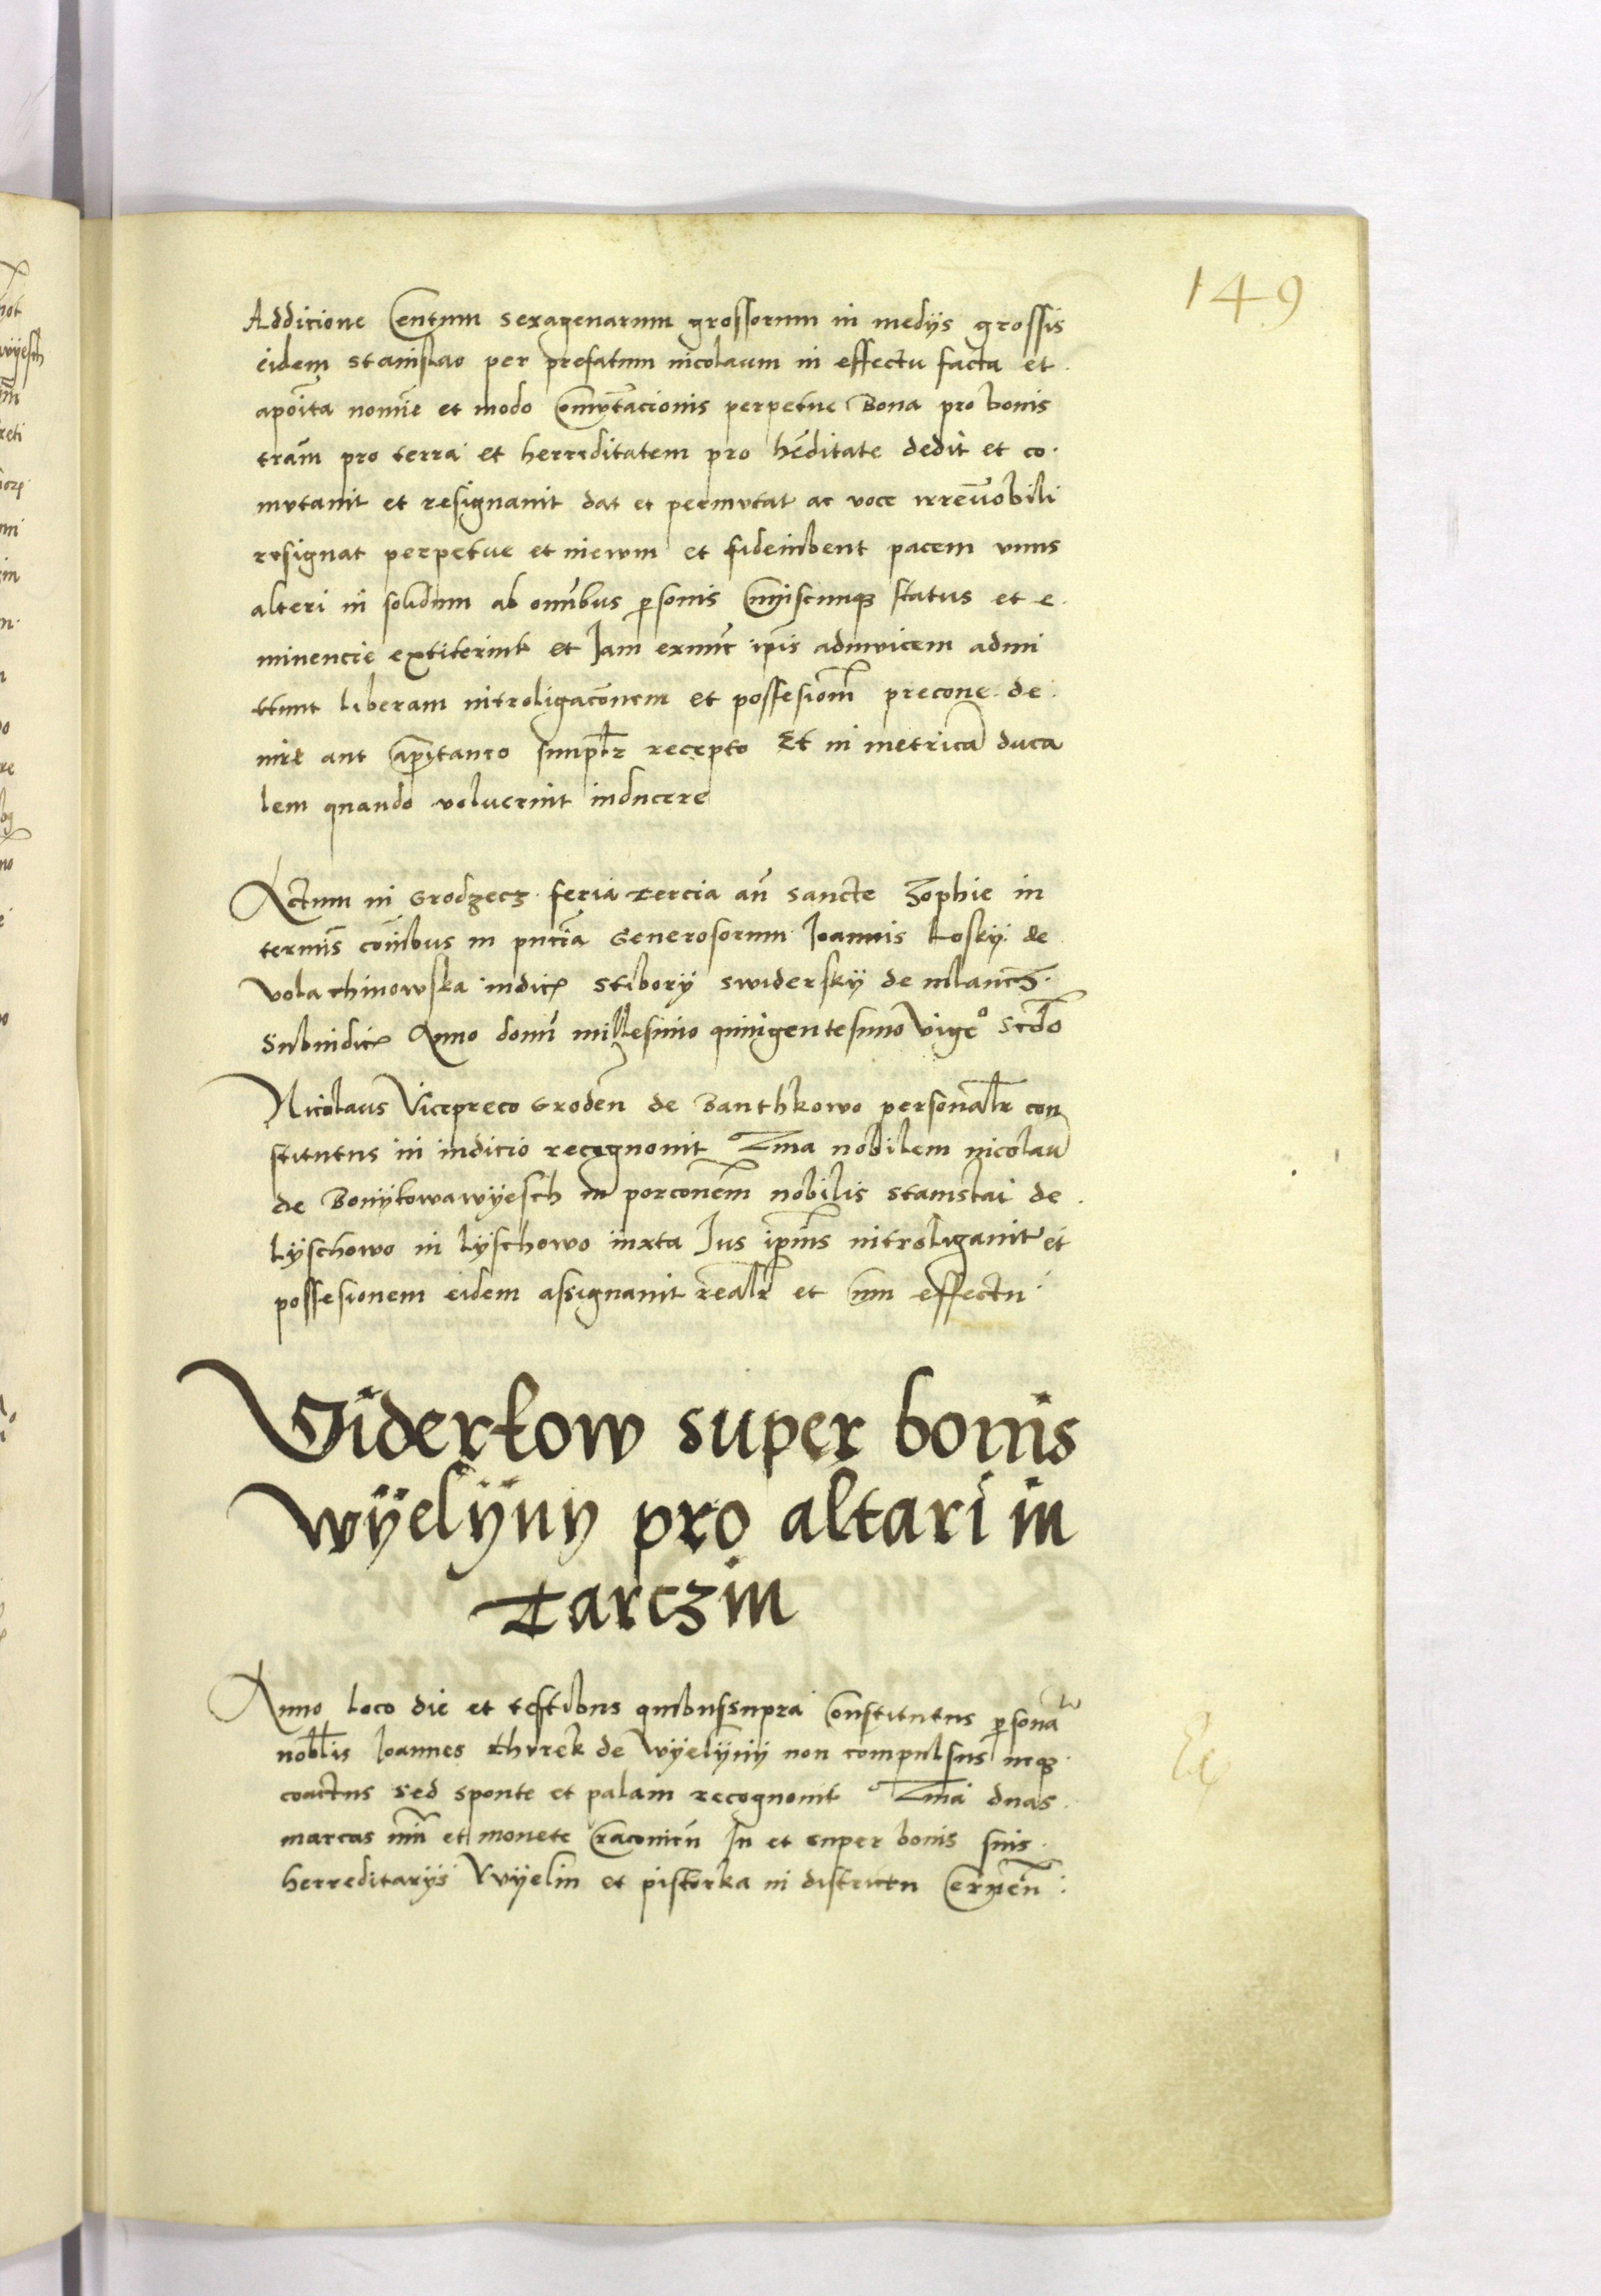 149
Addicione Centum sexagenarum grossorum in medijs grossis
eidem stanislao per prefatum nicolaum in effectu facta et
apoīta nomīe et modo Comutacionis perpetue Bona pro bonis
trām pro terra et herreditatem pro hēditate dedit et co
mutauit et resignauit dat et permutat ac voce irreuobili
resignat perpetue et in ewm et fideiubent pacem vnus
alteri in solidum ab omībus personis Cuiuscunq3 status et e
minencie extiterint et Jam exnunc ipīs adinuicem admi
ttunt liberam intraligacōnem et possesionem precone de
nire aut capitaneo simplr recepto Et in metricā duca
lem quando voluerint inducere
Actum in Grodzecz feria tercia an̄ sancte Zophie in
termīs coībus in pn̄cia Generosorum Joannis Losky de
vola chinowska iudicꝫ stibory swidersky de mlancz
Subiudicꝫ Anno domī millesimo quingentesimo vigeº scdo
Nicolaus Vicepreco Groden̄ de Banthkowo personalr con
stitutus in iudicio recognouit Quia nobilem nicolaū
de Bonykowawyesch in porconem̄ nobilis stanislai de
Lyschowo in lyschowo iuxta Jus ipīus intraligauit et
possesionem eidem assignauit realr et cum effectu
Viderkow super bonis
wyelyny pro altari in
Tarczin
Anno loco die et testibus quibussupra Constitutus personalr
nobilis Joannes thurek de wyelyny non compulsus neq3
coactus sed sponte et palam recognouit Quia duas
marcas num̄ et monete Craconien̄ In et super bonis suis
herreditarijs Wyelin et pistorka in districtu Cernen̄